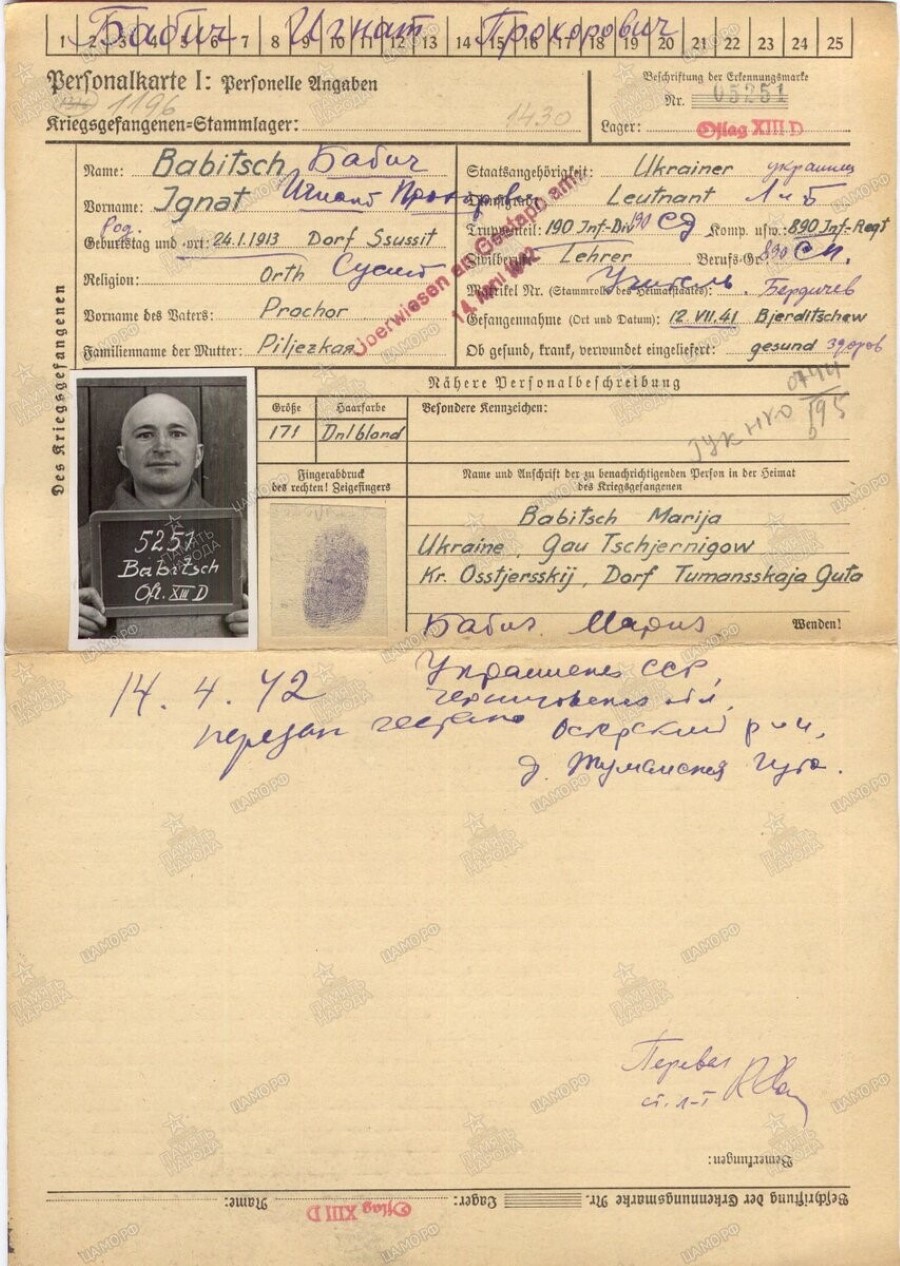 Бабич Игнат Прохорович
1 2 3 4 5 6 7 8 9 10 11 12 13 14 15 16 17 18 19 20 21 22 23 24 25
Personalkarte I: Personelle Angaben
1196
Kriegsgefangenen=Stammlager: 1430
Beschriftung der Erkennungsmarke
Nr. 05251
Lager: Oflag XIII D
Des Kriegsgefangenen
Name: Babitsch Бабич
Vorname: Ignat Игнат Прохорович
Geburtstag und =ort: 24.1.1913 Dorf Ssussit
Religion: Orth Сусит
Vorname des Vaters: Prochor
Familienname der Mutter: Piljezkaja
Staatsangehörigkeit: Ukrainer украинец
Dienstgrad: Leutnant Л-т
Truppenteil: 190 Inf-Div 190 СД Komp. usw.: 890 Inf.-Regt
Zivilberuf: Lehrer Berufs-Gr.: 890 СП.
Учитель
Matrikel Nr. (Stammrolle des Heimatstaates): Бердичев
Gefangennahme (Ort und Datum): 12.VII.41 Bjerditschew
Ob gesund, krank, verwundet eingeliefert: gesund здоров
Ueberwiesen an Gestapo am:
Nähere Personalbeschreibung
Größe Haarfarbe Besondere Kennzeichen:
171 Dnlblond
Fingerabdruck
des rechten! Zeigefingers
Name und Anschrift der zu benachrichtigenden Person in der Heimat
des Kriegsgefangenen
Babitsch Marija
Ukraine, Gau Tschjernigow
Kr. Osstjersskij, Dorf Tumansskaja Guta
Бабич Мария
Wenden!
5251
Babitsch
Ofl. XIII D
14.4.42
передан гестапо
Украинская ССР,
Черниговская обл,
Остерский р-н,
д. Туманская Гута.
Перевел
ст. л-т
Bemerkungen:
Beschriftung der Erkennungsmarke Nr. Lager: Oflag XIII D Name:
ПАМЯТЬ НАРОДА
ЦАМО.РФ